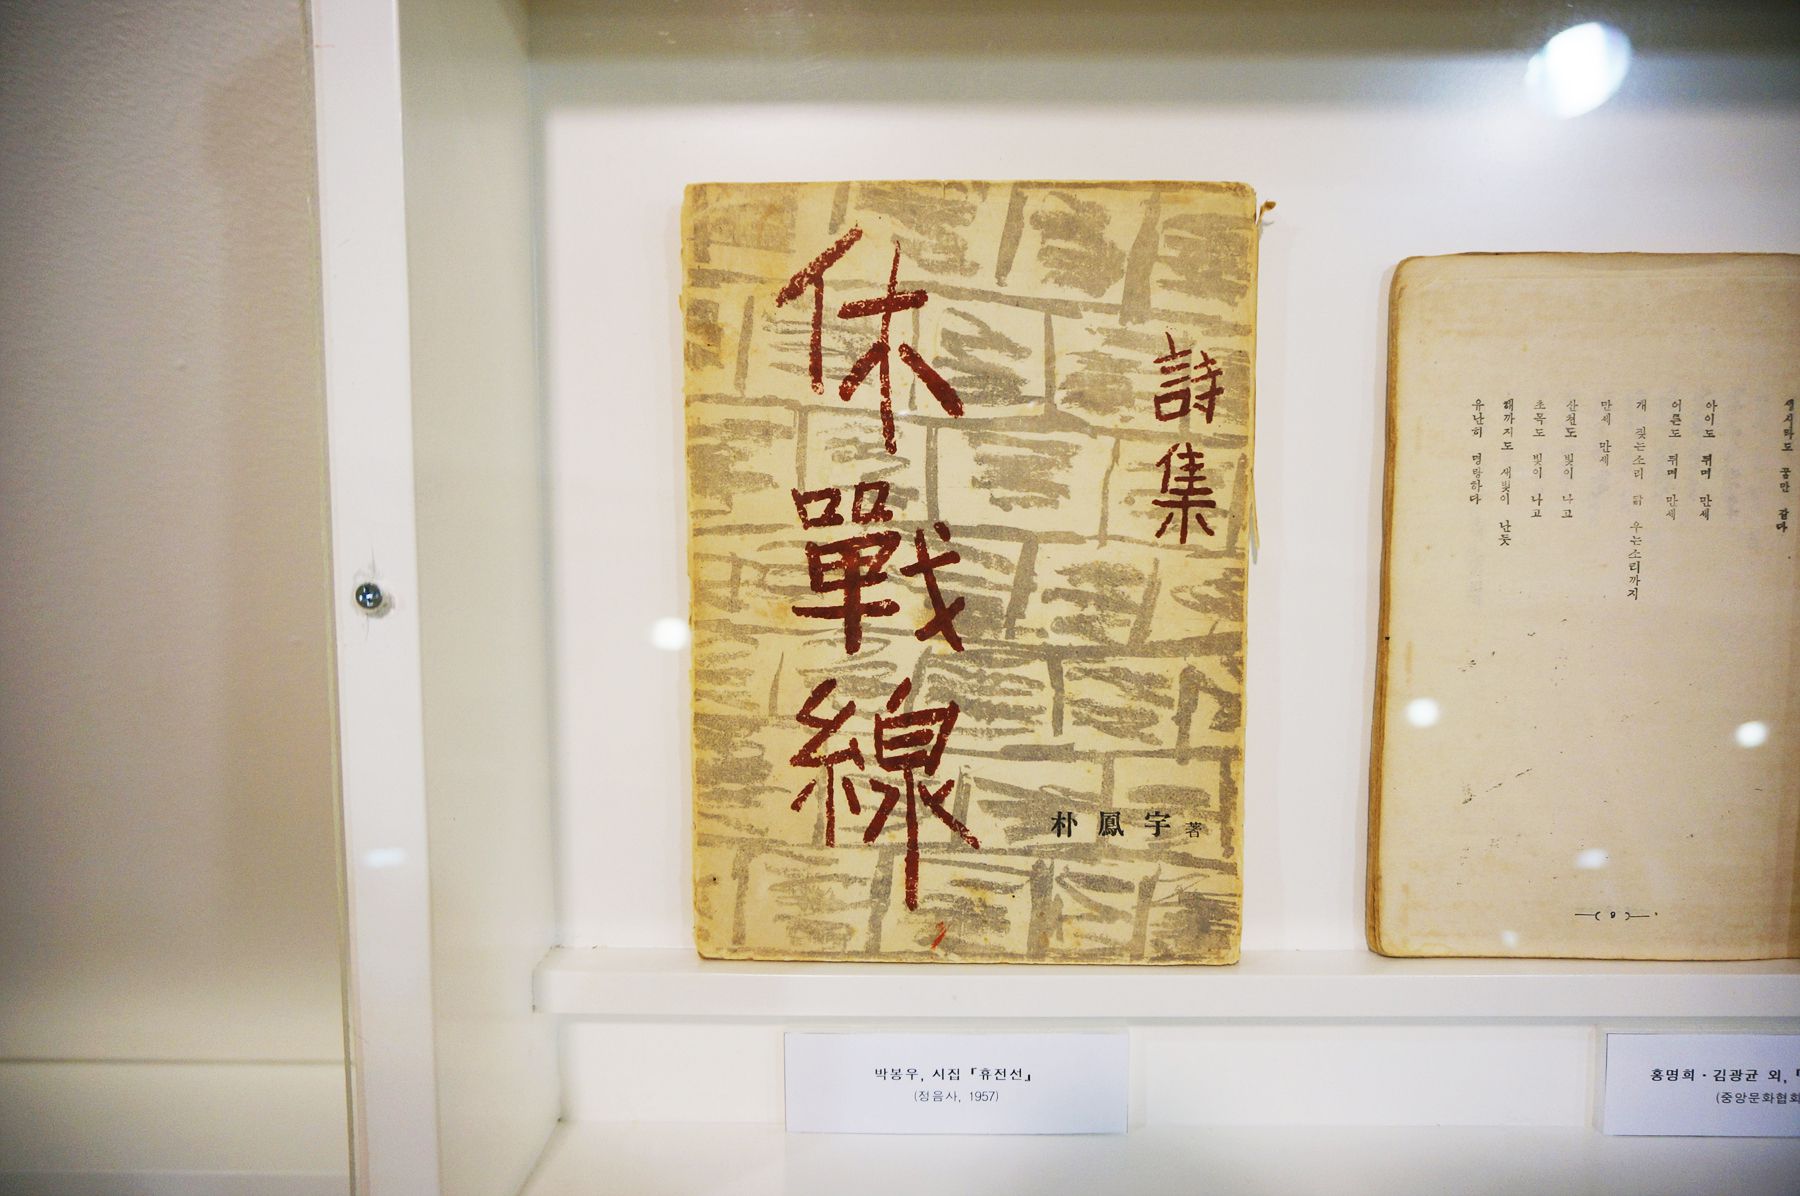 休戰線
詩集
朴鳳宇 著
박봉우, 시집 『휴전선』
(정음사, 1957)
세시라도 꿈만 같다
아이도 뛰며 만세
어른도 뛰며 만세
개 짖는소리 닭 우는소리까지
만세 만세
산천도 빛이 나고
초목도 빛이 나고
해까지도 새빛이 난듯
유난히 명랑하다
홍명희·김광균 외, 『
(중앙문화협회